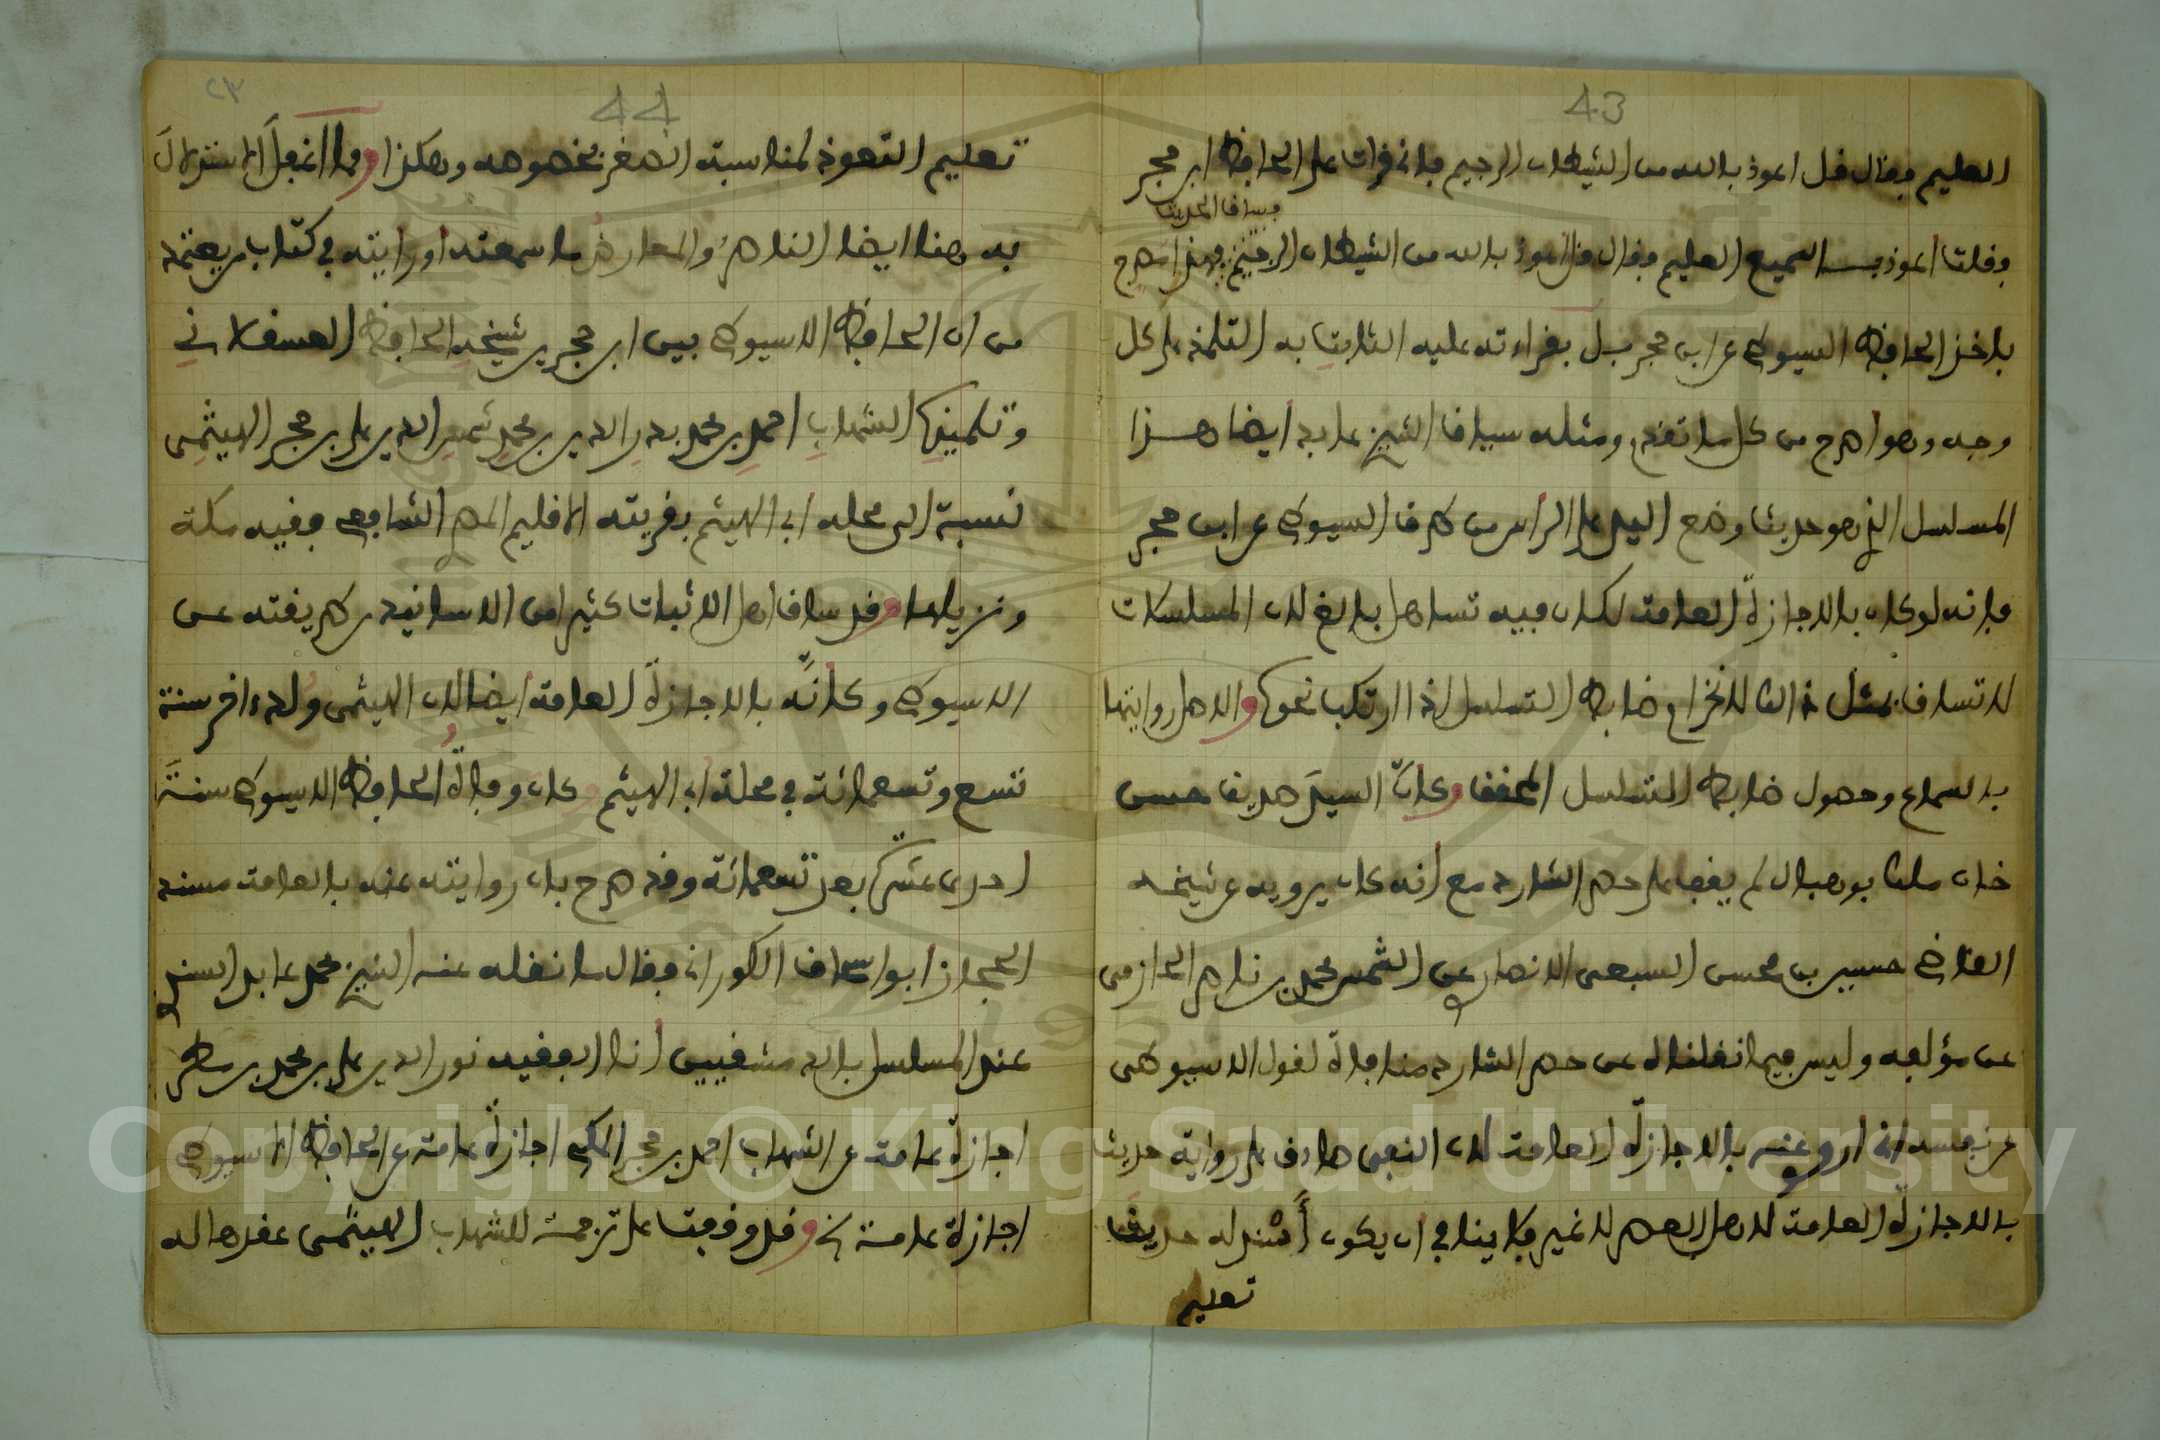 43
العليم فقال قل اعوذ بالله من الشيطان الرجيم فاني قرات على الحافظ ابن حجر
وقلت اعوذ بالسميع العليم فقال قل اعوذ بالله من الشيطان الرجيم فساق الحديث فهذا صرح
باخذ الحافظ السيوطي عن ابن حجر بل بقراءته عليه الثابت به التلمذ على كل
وجه وهو اصرح من كل ما تقدم ومثله سياق الشيخ عابد ايضا هذا
المسلسل الذي هو حديث وضع اليد على الراس من طرق السيوطي عن ابن حجر
فانه لو كان بالاجازة العامة لكان فيه تساهل بالغ لان المسلسلات
لا تساق بمثل ذالك لانخرام ضابط التسلسل اذا ارتكب نحوها والاصل روايتها
بالسماع وحصول ضابط التسلسل المحقق وكان السيد صديق حسن
خان ملك بوهبال لم يقف على حصر الشارد مع انه كان يرويه عن شيخه
القاضي حسين بن محسن السبعي الانصاري عن الشمس محمد بن ناصر الحازمي
عن مؤلفه وليس فيما نقلناه عن حصر الشارد منافاة لقول السيوطي
عن نفسه اني اروي عنه بالاجازة العامة لان النعي صادق على رواية حديث
بالاجازة العامة لاهل العصر لا غير فلا ينافي ان يكون أسند له حديث
تعليم
44
٢٣
تعليم التعوذ لمناسبة الصغر بخصوصه وهكذا ومما انفعل الاستدلال
به هنا ايضا الناصر والمعارض ما سمعته او رايته في كتاب يعتمد
من ان الحافظ السيوطي بين ابن حجرين شيخه الحافظ العسقلاني
وتلميذها الشهاب احمد بن محمد بدر الدين بن محمد شمس الدين بن علي بن حجر الهيثمي
نسبة الى محله ابي الهيثم بقرية الاقليم المصر الشافعي فقيه مكة
ونزيلها وقد ساق اهل الاثبات كثيرا من الاسانيد من طريقته عن
السيوطي وكانه بالاجازة العامة ايضا لان الهيثمي ولد ءاخر سنة
تسع وتسعمائة في محلة ابي الهيثم وكان وفاة الحافظ السيوطي سنة
احدى عشر بعد تسعمائة وقد صرح بان روايته عنه بالعامة مسند
الحجاز ابو اسحاق الكوراني فقال ما نقله عنه الشيخ محمد عابد السندي
عند المسلسل بالدمشقيين انا الفقيه نور الدين علي بن محمد بن مطير
اجازة عامة عن الشهاب احمد بن حجر المكي اجازة عامة عن الحافظ السيوطي
اجازة عامة اهـ وقد وقفت على ترجمة للشهاب الهيثمي عقدها له
Copyright © King Saud University
1957